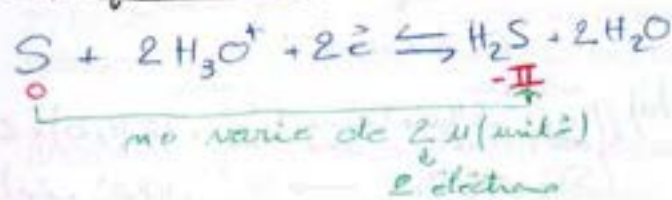 S + 2H₃O⁺ + 2e̅ ⇌ H₂S + 2H₂O
0 -II
no varie de 2 u (unité)
2 électrons